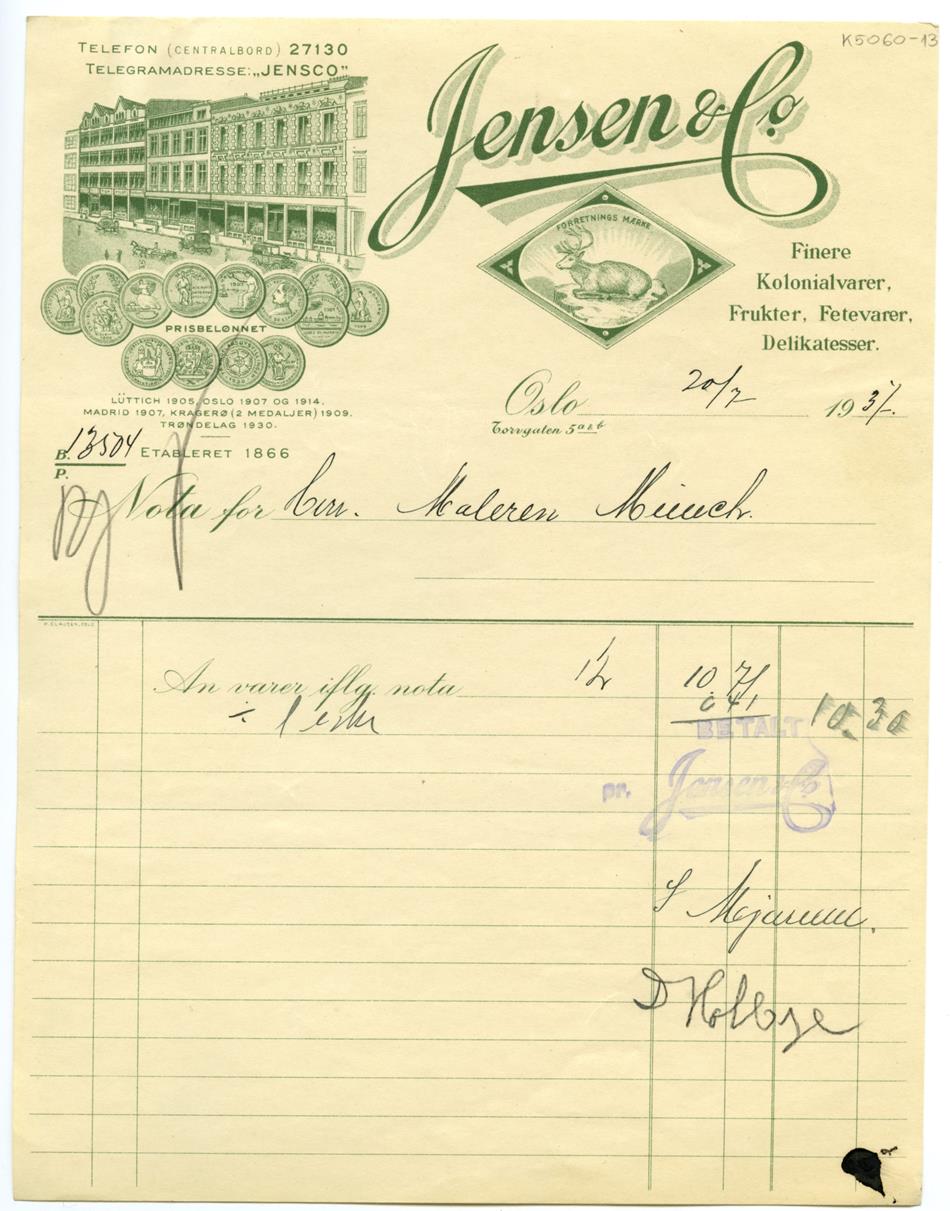 K5060-13
TELEFON (CENTRALBORD) 27130
TELEGRAMADRESSE: „JENSCO"
Jensen & Co.
FORRETNINGS MÆRKE
Finere
Kolonialvarer,
Frukter, Fetevarer,
Delikatesser.
PRISBELØNNET
LÜTTICH 1905, OSLO 1907 OG 1914,
MADRID 1907, KRAGERØ (2 MEDALJER) 1909.
TRØNDELAG 1930.
Oslo 20/7 1937.
Torvgaten 5 a & b
B. 13504 ETABLERET 1866
P.
Nota for Herr. Maleren Münch.
An varer iflg. nota 1/2 10 71
÷ 0 41 10.30
BETALT
pr. Jensen & Co
D Holbye